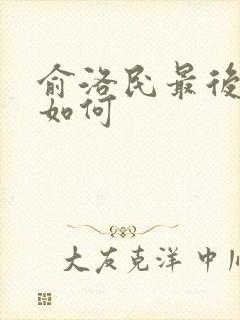 俞洛民最後
如何
大友克洋 中